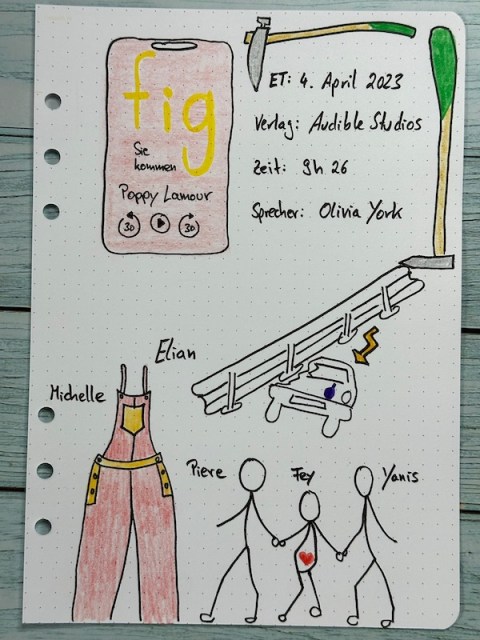 fig
Sie
kommen
Poppy Lamour
30
30
ET: 4. April 2023
Verlag: Audible Studios
Zeit: 9h 26
Sprecher: Olivia York
Elian
Michelle
Piere
Fey
Yanis